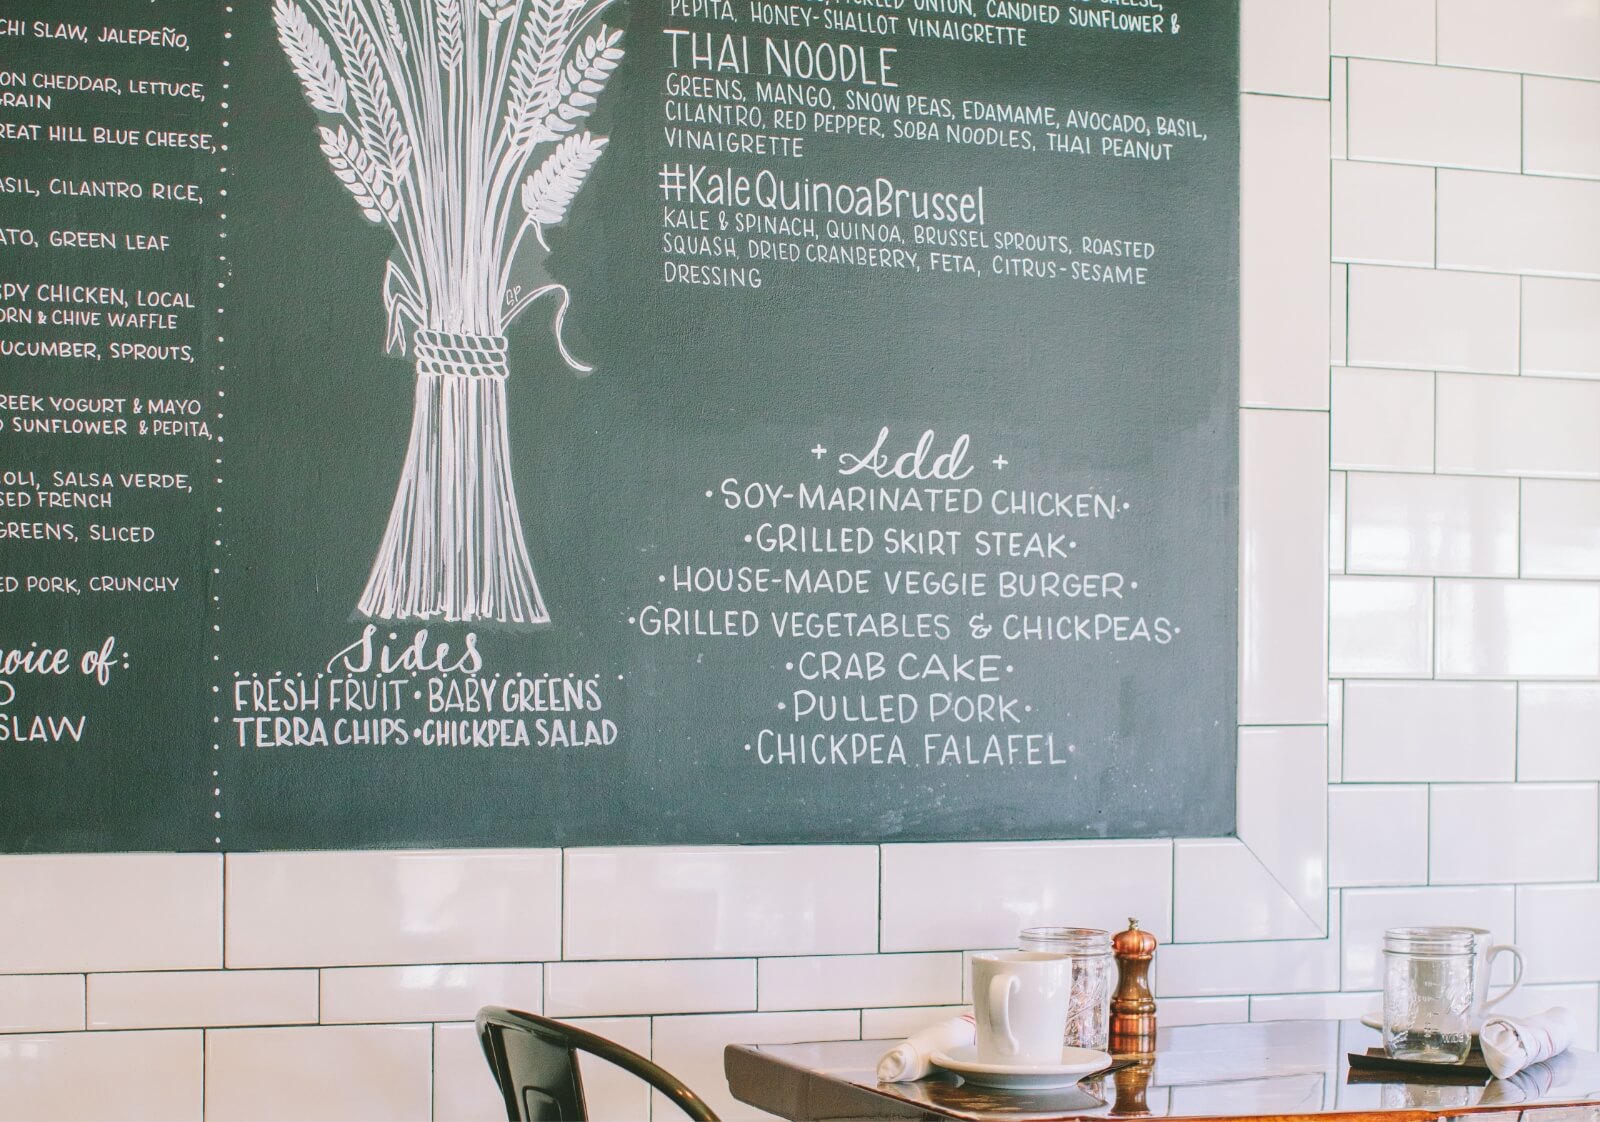 CHI SLAW, JALEPEÑO,
ON CHEDDAR, LETTUCE,
GRAIN
REAT HILL BLUE CHEESE,
ASIL, CILANTRO RICE,
ATO, GREEN LEAF
SPY CHICKEN, LOCAL
ORN & CHIVE WAFFLE
UCUMBER, SPROUTS,
REEK YOGURT & MAYO
D SUNFLOWER & PEPITA,
OLI, SALSA VERDE,
SED FRENCH
GREENS, SLICED
ED PORK, CRUNCHY
hoice of:
SLAW
GP
Sides
FRESH FRUIT • BABY GREENS
TERRA CHIPS • CHICKPEA SALAD
PICKLED ONION, CANDIED SUNFLOWER &
PEPITA, HONEY-SHALLOT VINAIGRETTE
THAI NOODLE
GREENS, MANGO, SNOW PEAS, EDAMAME, AVOCADO, BASIL,
CILANTRO, RED PEPPER, SOBA NOODLES, THAI PEANUT
VINAIGRETTE
#KaleQuinoaBrussel
KALE & SPINACH, QUINOA, BRUSSEL SPROUTS, ROASTED
SQUASH, DRIED CRANBERRY, FETA, CITRUS-SESAME
DRESSING
+ Add +
• SOY-MARINATED CHICKEN •
• GRILLED SKIRT STEAK •
• HOUSE-MADE VEGGIE BURGER •
• GRILLED VEGETABLES & CHICKPEAS •
• CRAB CAKE •
• PULLED PORK •
• CHICKPEA FALAFEL •